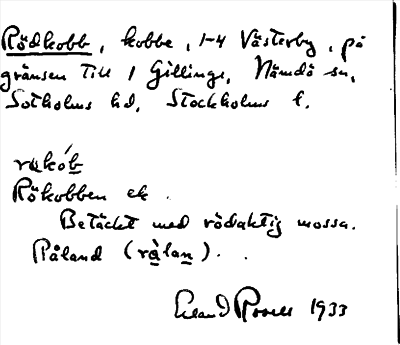 Rödkobb, kobbe, 1-4 Västerby, på
gränsen till 1 Gillinge, Nämdö sn,
Sotholms hd, Stockholms l.
rα̣kób
Rökobben ek.
Betäckt med rödaktig mossa.
Råland (rå̀lan).
Erland Rosell 1933